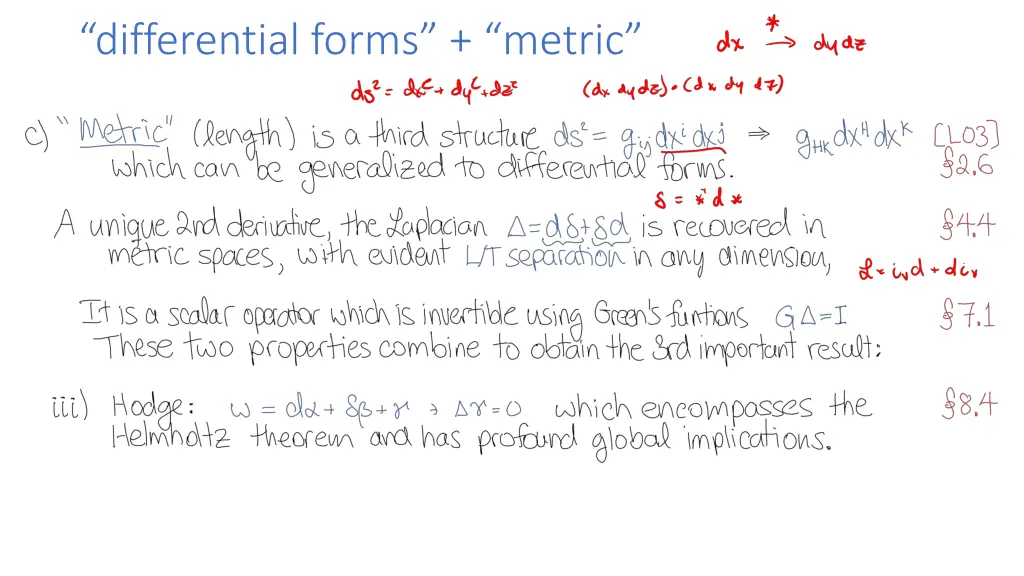 “differential forms” + “metric”
dx *→ dy dz
ds² = dx² + dy² + dz² (dx dy dz) · (dx dy dz)
c) "Metric" (length) is a third structure ds² = g_ij dx^i dx^j ⇒ g_HK dx^H dx^K [L03]
which can be generalized to differential forms. §2.6
δ = *⁻¹ d *
A unique 2nd derivative, the Laplacian Δ = dδ + δd is recovered in §4.4
metric spaces, with evident L/T separation in any dimension,
ℒ = i_v d + d i_v
It is a scalar operator which is invertible using Green's funtions GΔ = I §7.1
These two properties combine to obtain the 3rd important result:
iii) Hodge: ω = dα + δβ + γ , Δγ = 0 which encompasses the §8.4
Helmholtz theorem and has profound global implications.